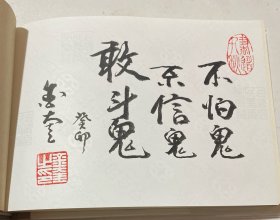 不怕鬼
不信鬼
敢斗鬼
癸卯